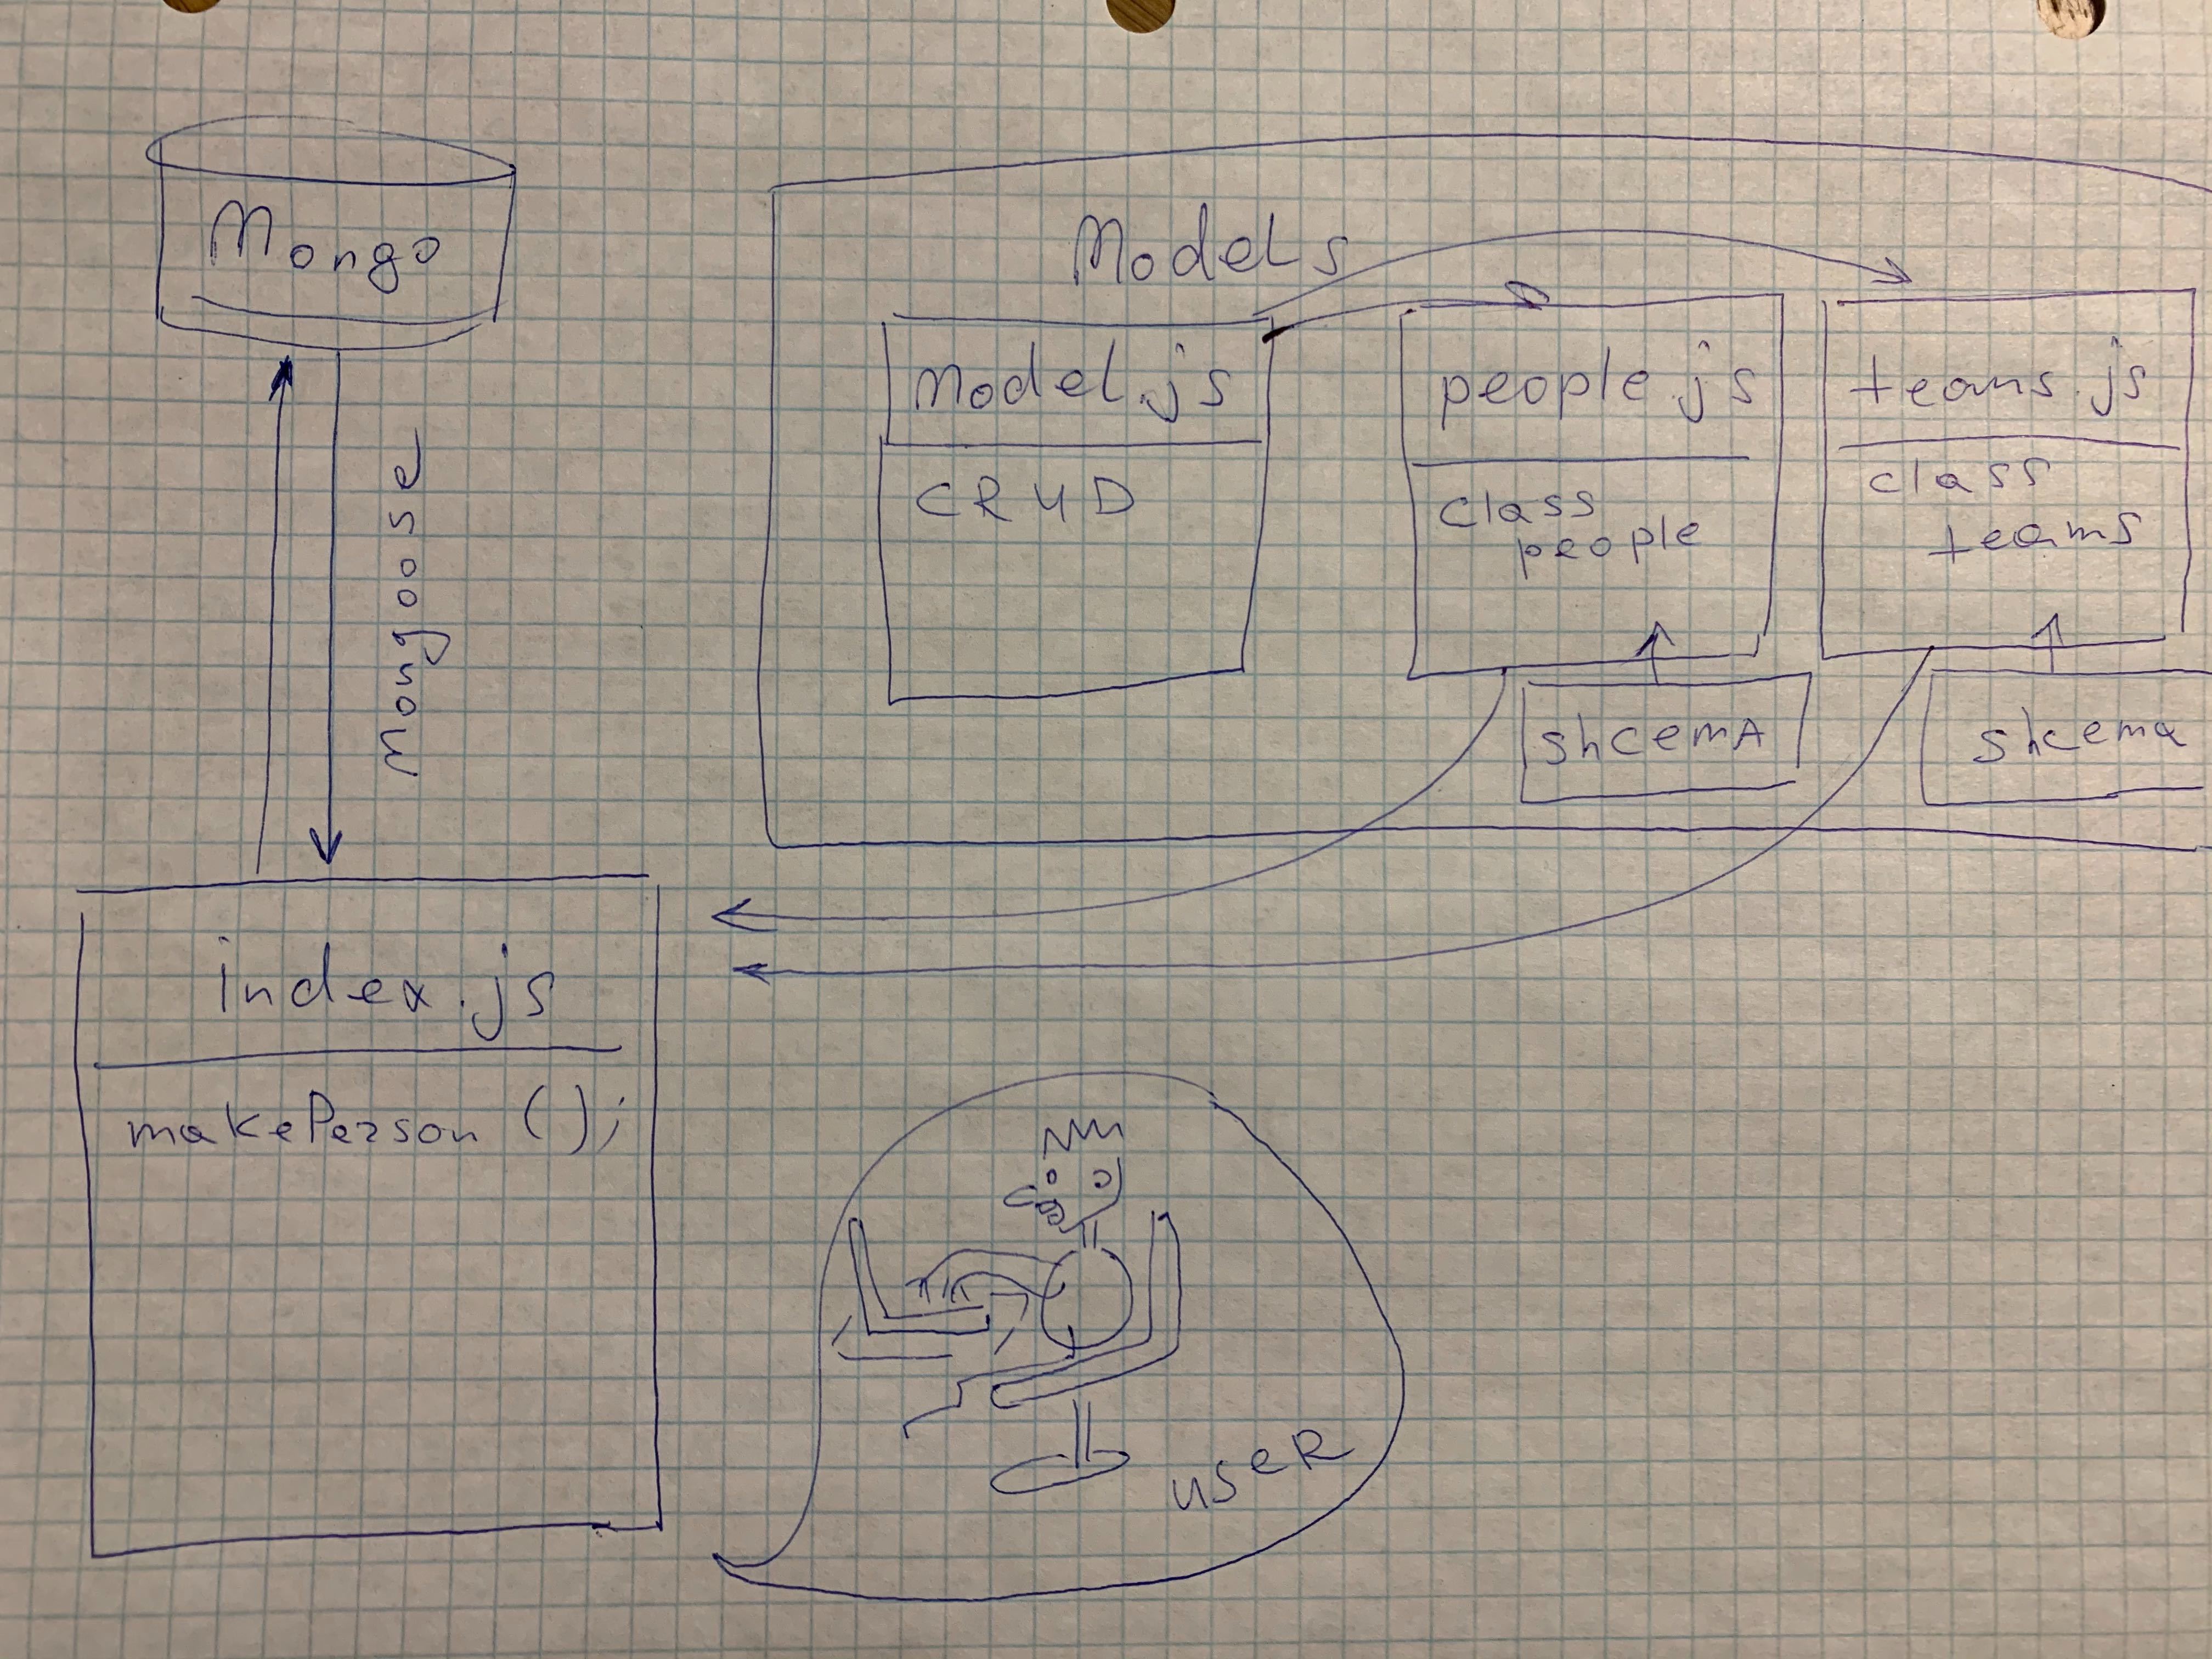 Mongo
Mongoose
Models
Model.js
CRUD
people.js
class
people
shcemA
teams.js
class
teams
shcema
index.js
makePerson ();
useR